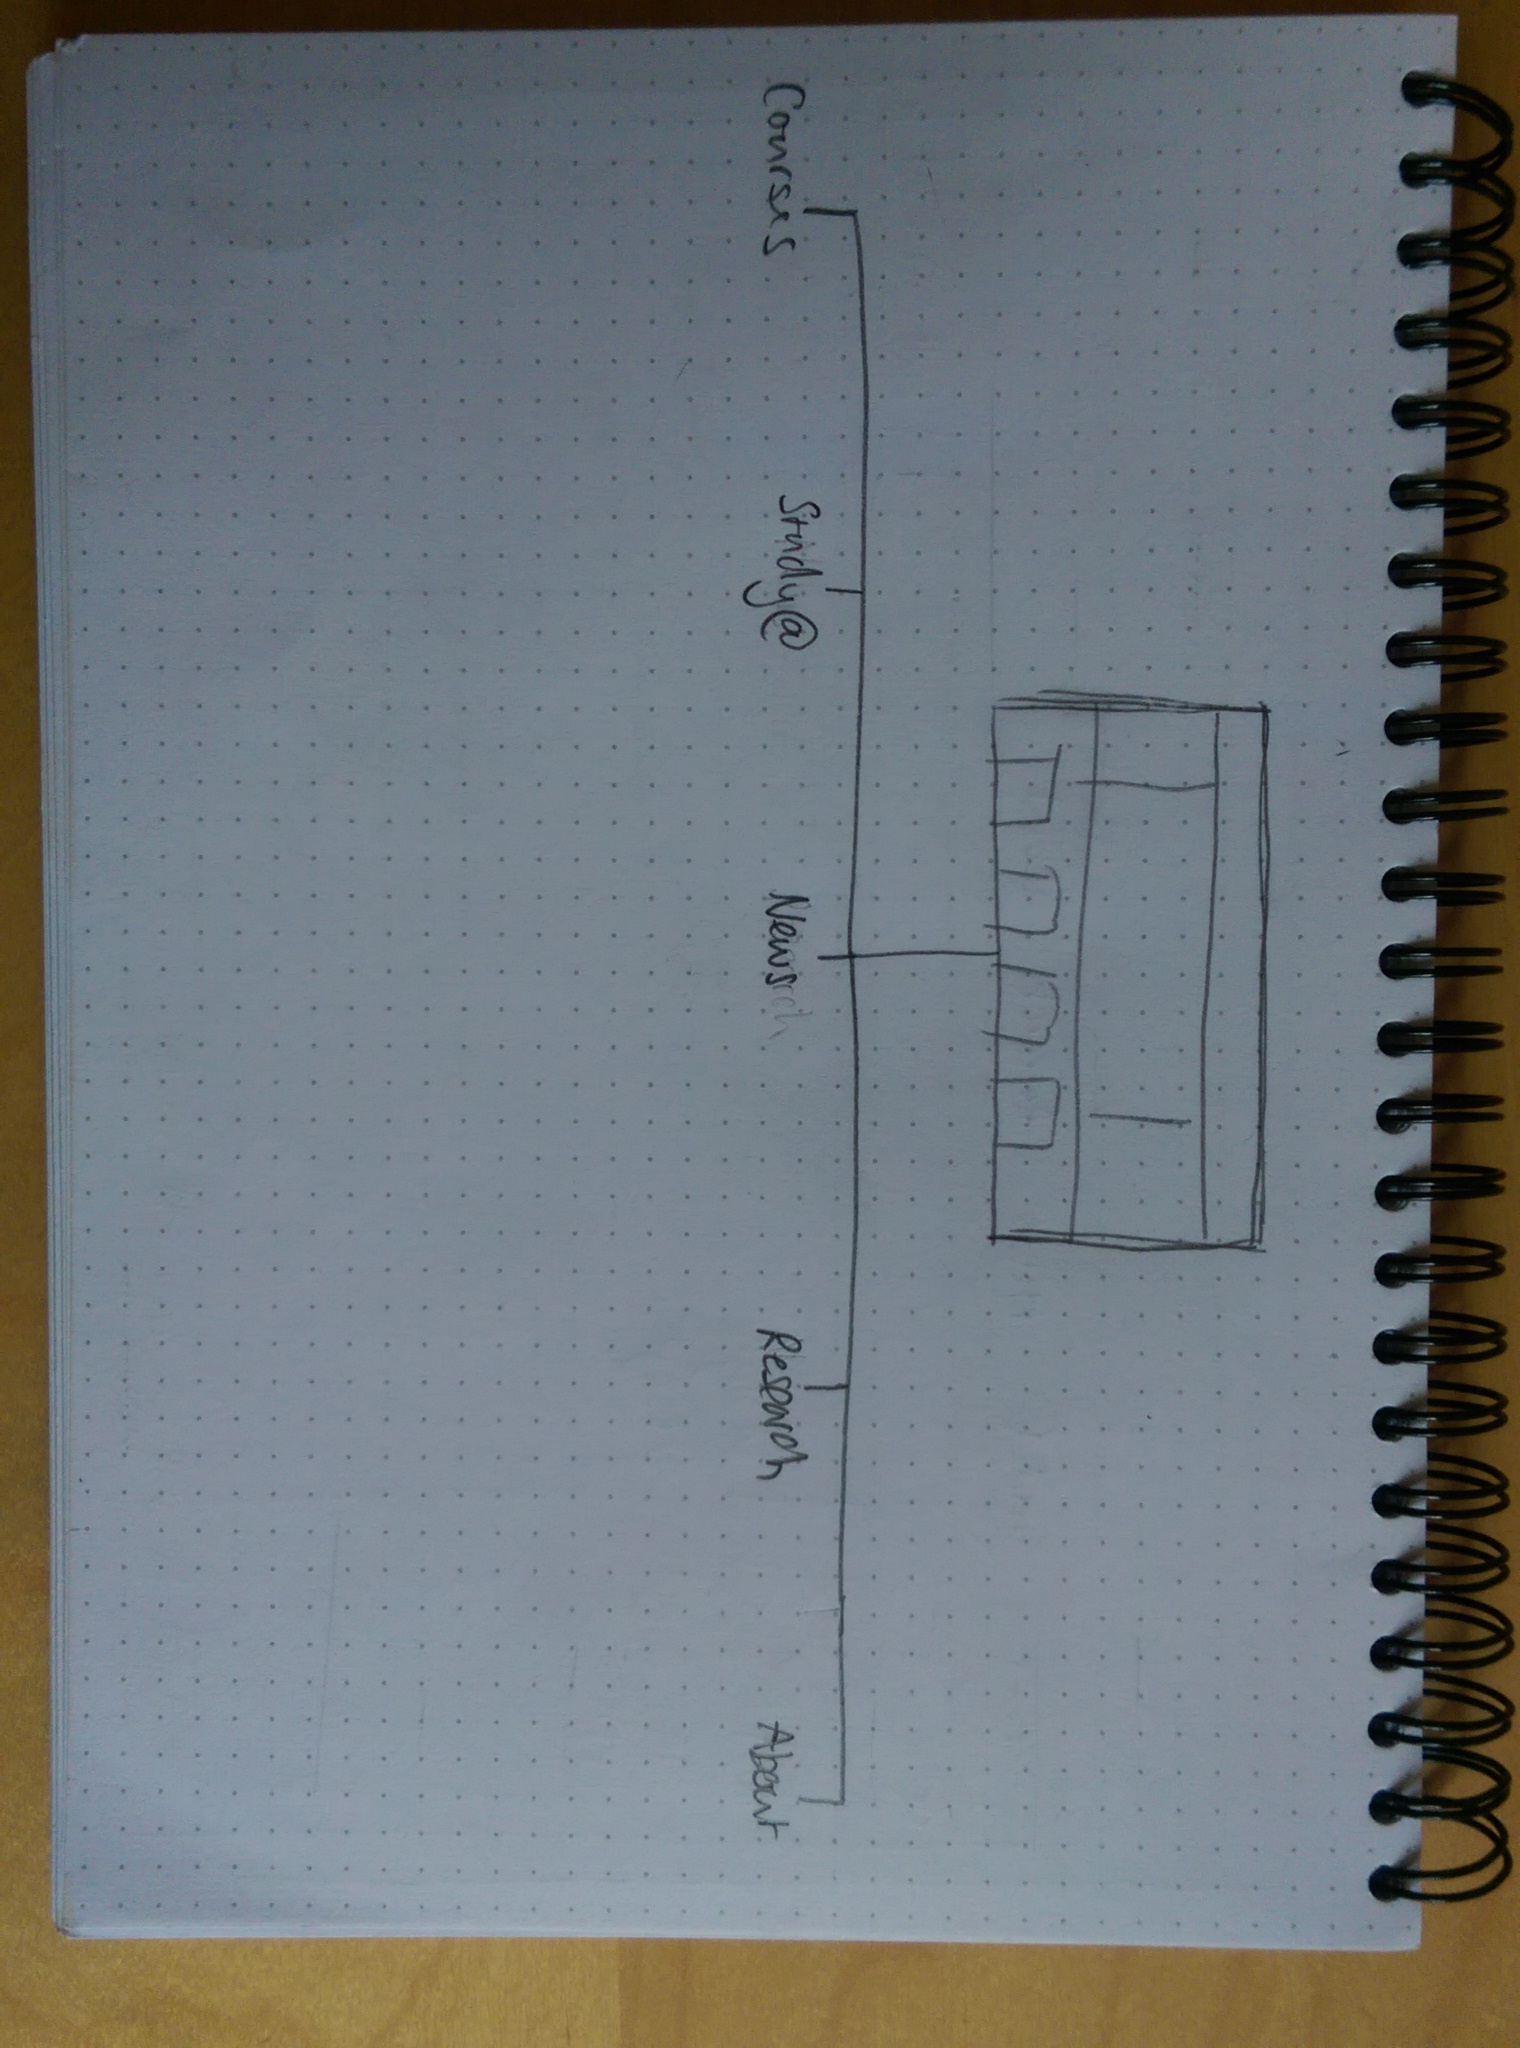 Courses
Study@
News
Research
About